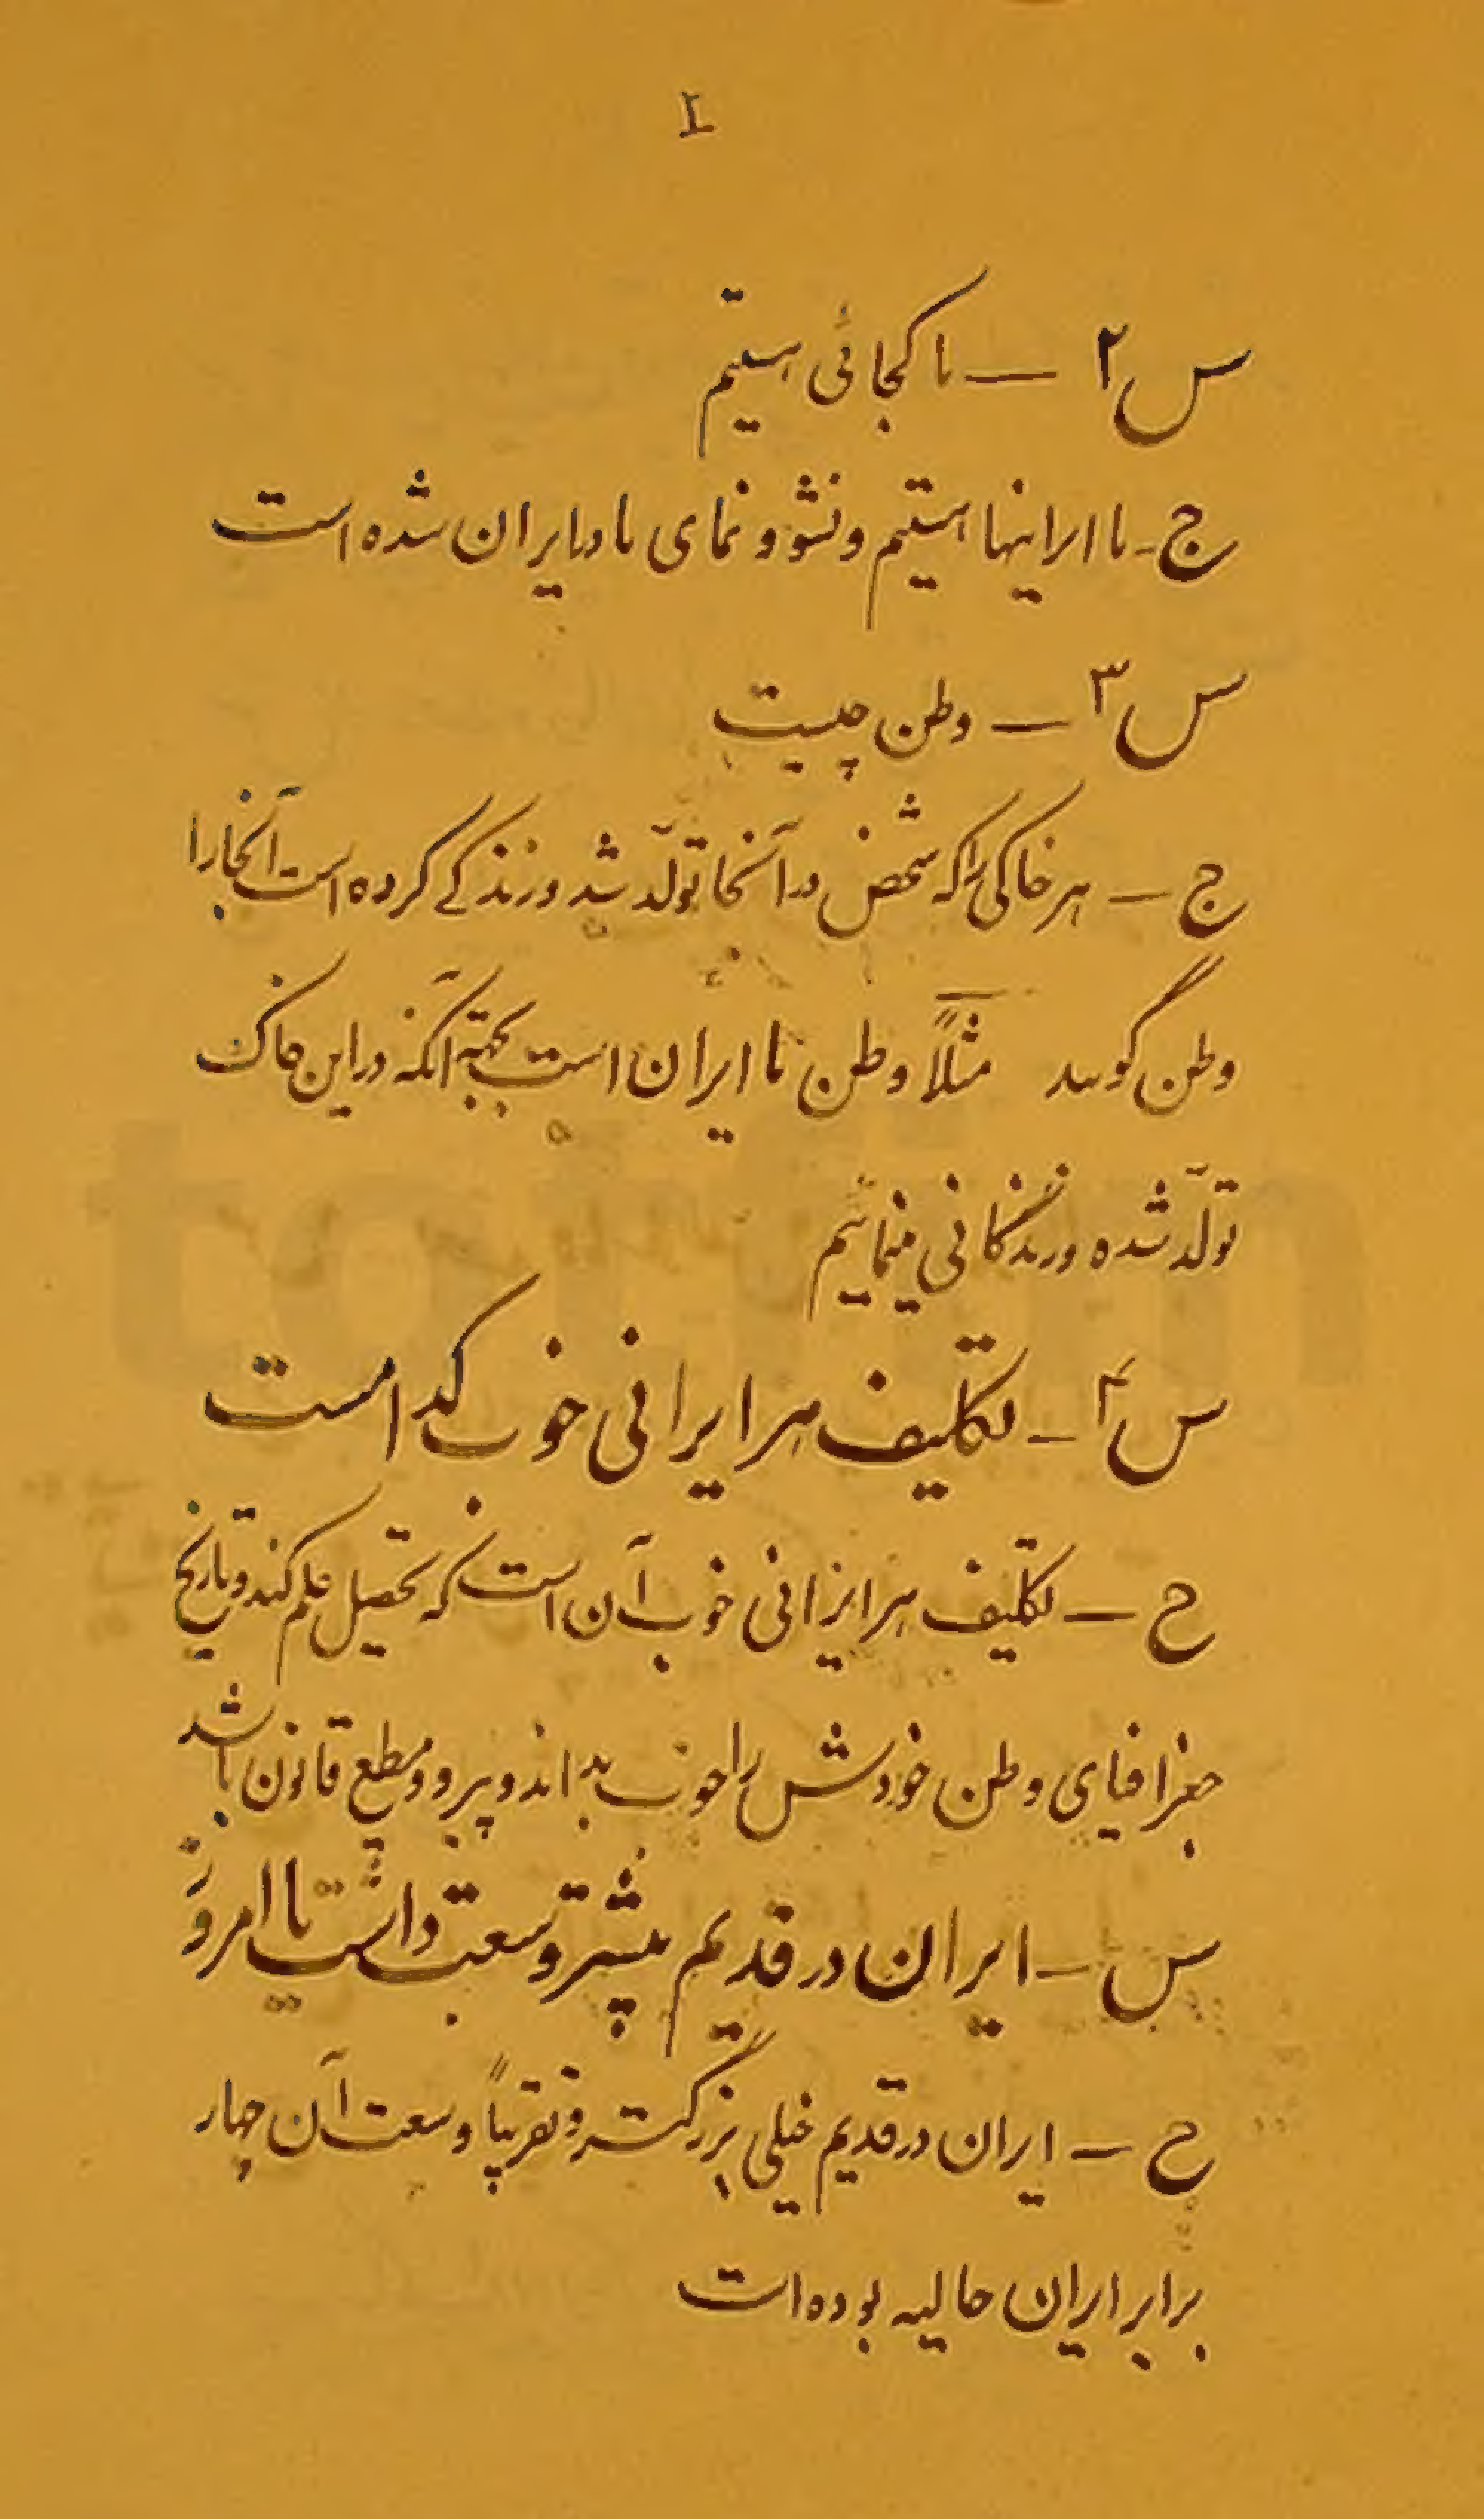 ۲
س ۲ — ما کجائی هستیم
ج - ما ایرانیها هستیم و نشو و نمای ما در ایران شده است
س ۳ — وطن چیست
ج — هر خاکی را که شخص در آنجا تولّد شد و زندگی کرده است آنجا را
وطن گویند مثلاً وطن ما ایران است بجهته آنکه در این خاک
تولّد شده و زندگانی مینمائیم
س ۴ — تکلیف هر ایرانی خوب کدامست
ج — تکلیف هر ایرانی خوب آن است که تحصیل علم کند و تاریخ
جغرافیای وطن خودش را خوب بداند و پیرو و مطیع قانون باشد
س — ایران در قدیم بیشتر وسعت داشت یا امروز
ج — ایران در قدیم خیلی بزرگتر و تقریباً وسعت آن چهار
برابر ایران حالیه بوده است